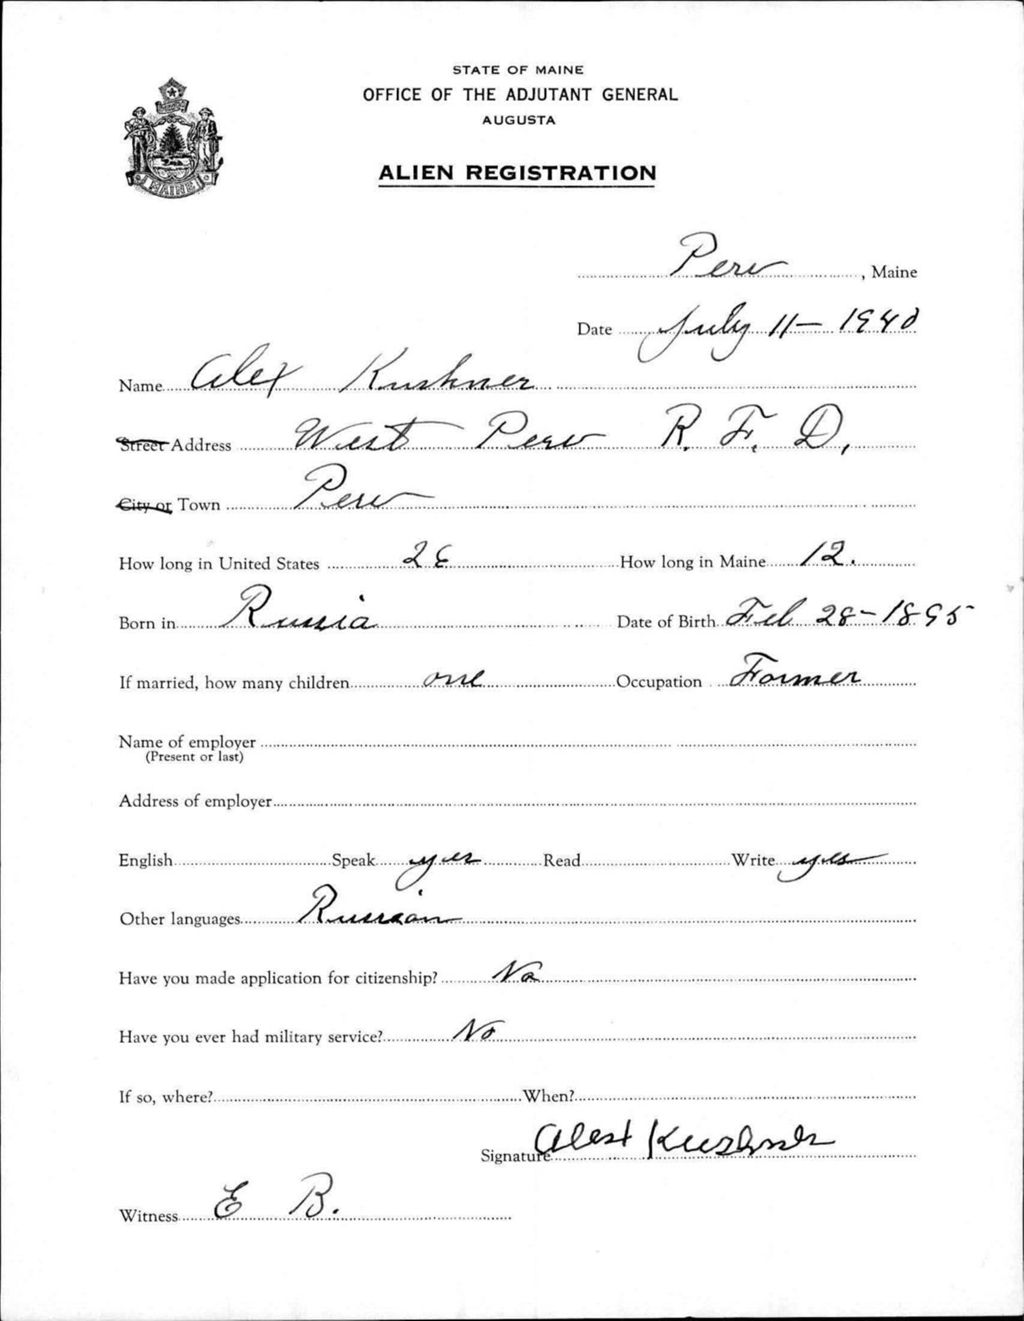 STATE OF MAINE
OFFICE OF THE ADJUTANT GENERAL
AUGUSTA
ALIEN REGISTRATION
MAINE
Peru, Maine
Date July 11- 1940
Name Alex Kushner
Street Address West Peru R. F. D.
City or Town Peru
How long in United States How long in Maine 12.
Born in Russia Date of Birth Feb 28-1895
If married, how many children one Occupation Farmer
Name of employer
(Present or last)
Address of employer
English Speak yes Read Write yes
Other languages Russian
Have you made application for citizenship? No
Have you ever had military service? No
If so, where? When?
Signature Kushner
Witness E B.